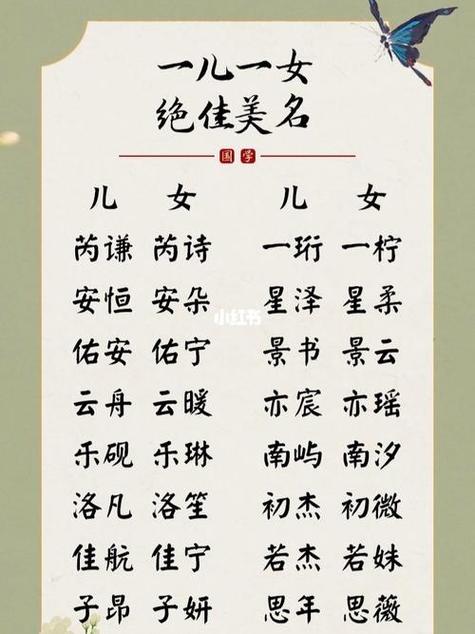 一儿一女
绝佳美名
国学
儿 女 儿 女
芮谦 芮诗 一珩 一柠
安恒 安朵 星泽 星柔
小红书
佑安 佑宁 景书 景云
云舟 云暖 亦宸 亦瑶
乐砚 乐琳 南屿 南汐
洛凡 洛笙 初杰 初微
佳航 佳宁 若杰 若妹
子昂 子妍 思年 思薇